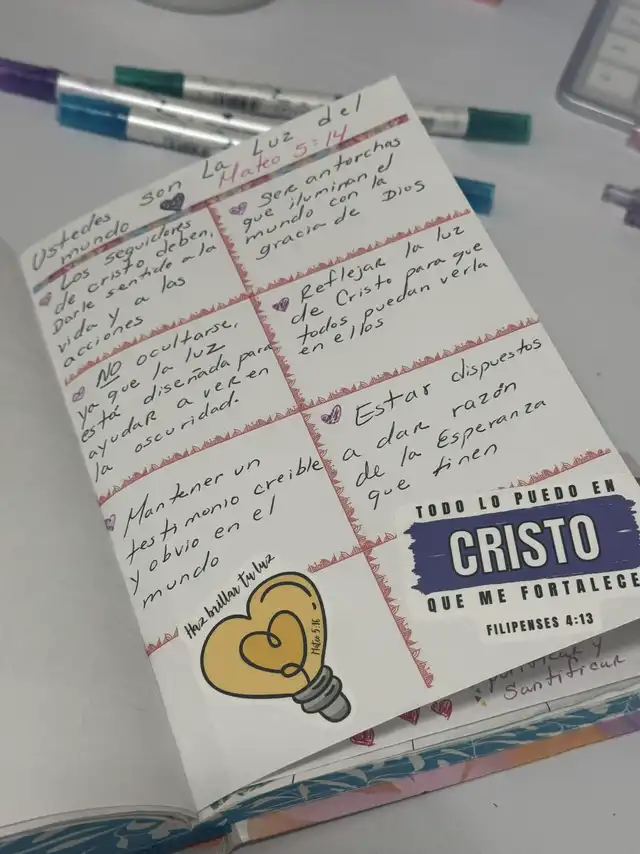 Ustedes son La Luz del
mundo
Mateo 5:14
Los seguidores
de cristo deben,
Darle sentido a la
vida y a las
acciones
Ser antorchas
que iluminan el
mundo con la
gracia de Dios
NO ocultarse,
ya que la luz
está diseñada para
ayudar a ver en
la oscuridad.
Reflejar la luz
de Cristo para que
todos puedan verla
en ellos
Mantener un
testimonio creible
y obvio en el
mundo
Estar dispuestos
a dar razón
de la Esperanza
que tinen
Haz brillar tu luz
Mateo 5:16
TODO LO PUEDO EN
CRISTO
QUE ME FORTALECE
FILIPENSES 4:13
purificar y
Santificar